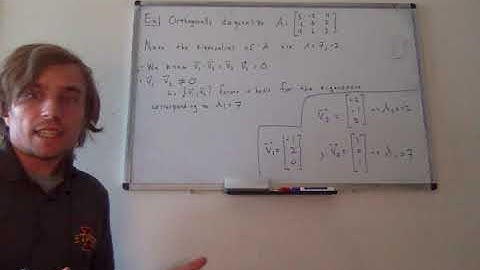 Ex) Orthogonally diagonalize A=[3 -2 4; -2 6 2; 4 2 3]
Note the eigenvalues of A are λ=7,-2
We know V₁·V₃=V₂·V₃=0
V₁·V₂≠0
{V₁,V₂} forms a basis for the eigenspace
corresponding to λ₁=7
V₃=[-2 -1 2] λ₂=-2
V₁=[-1 2 0], V₂=[1 0 1] λ₁=7